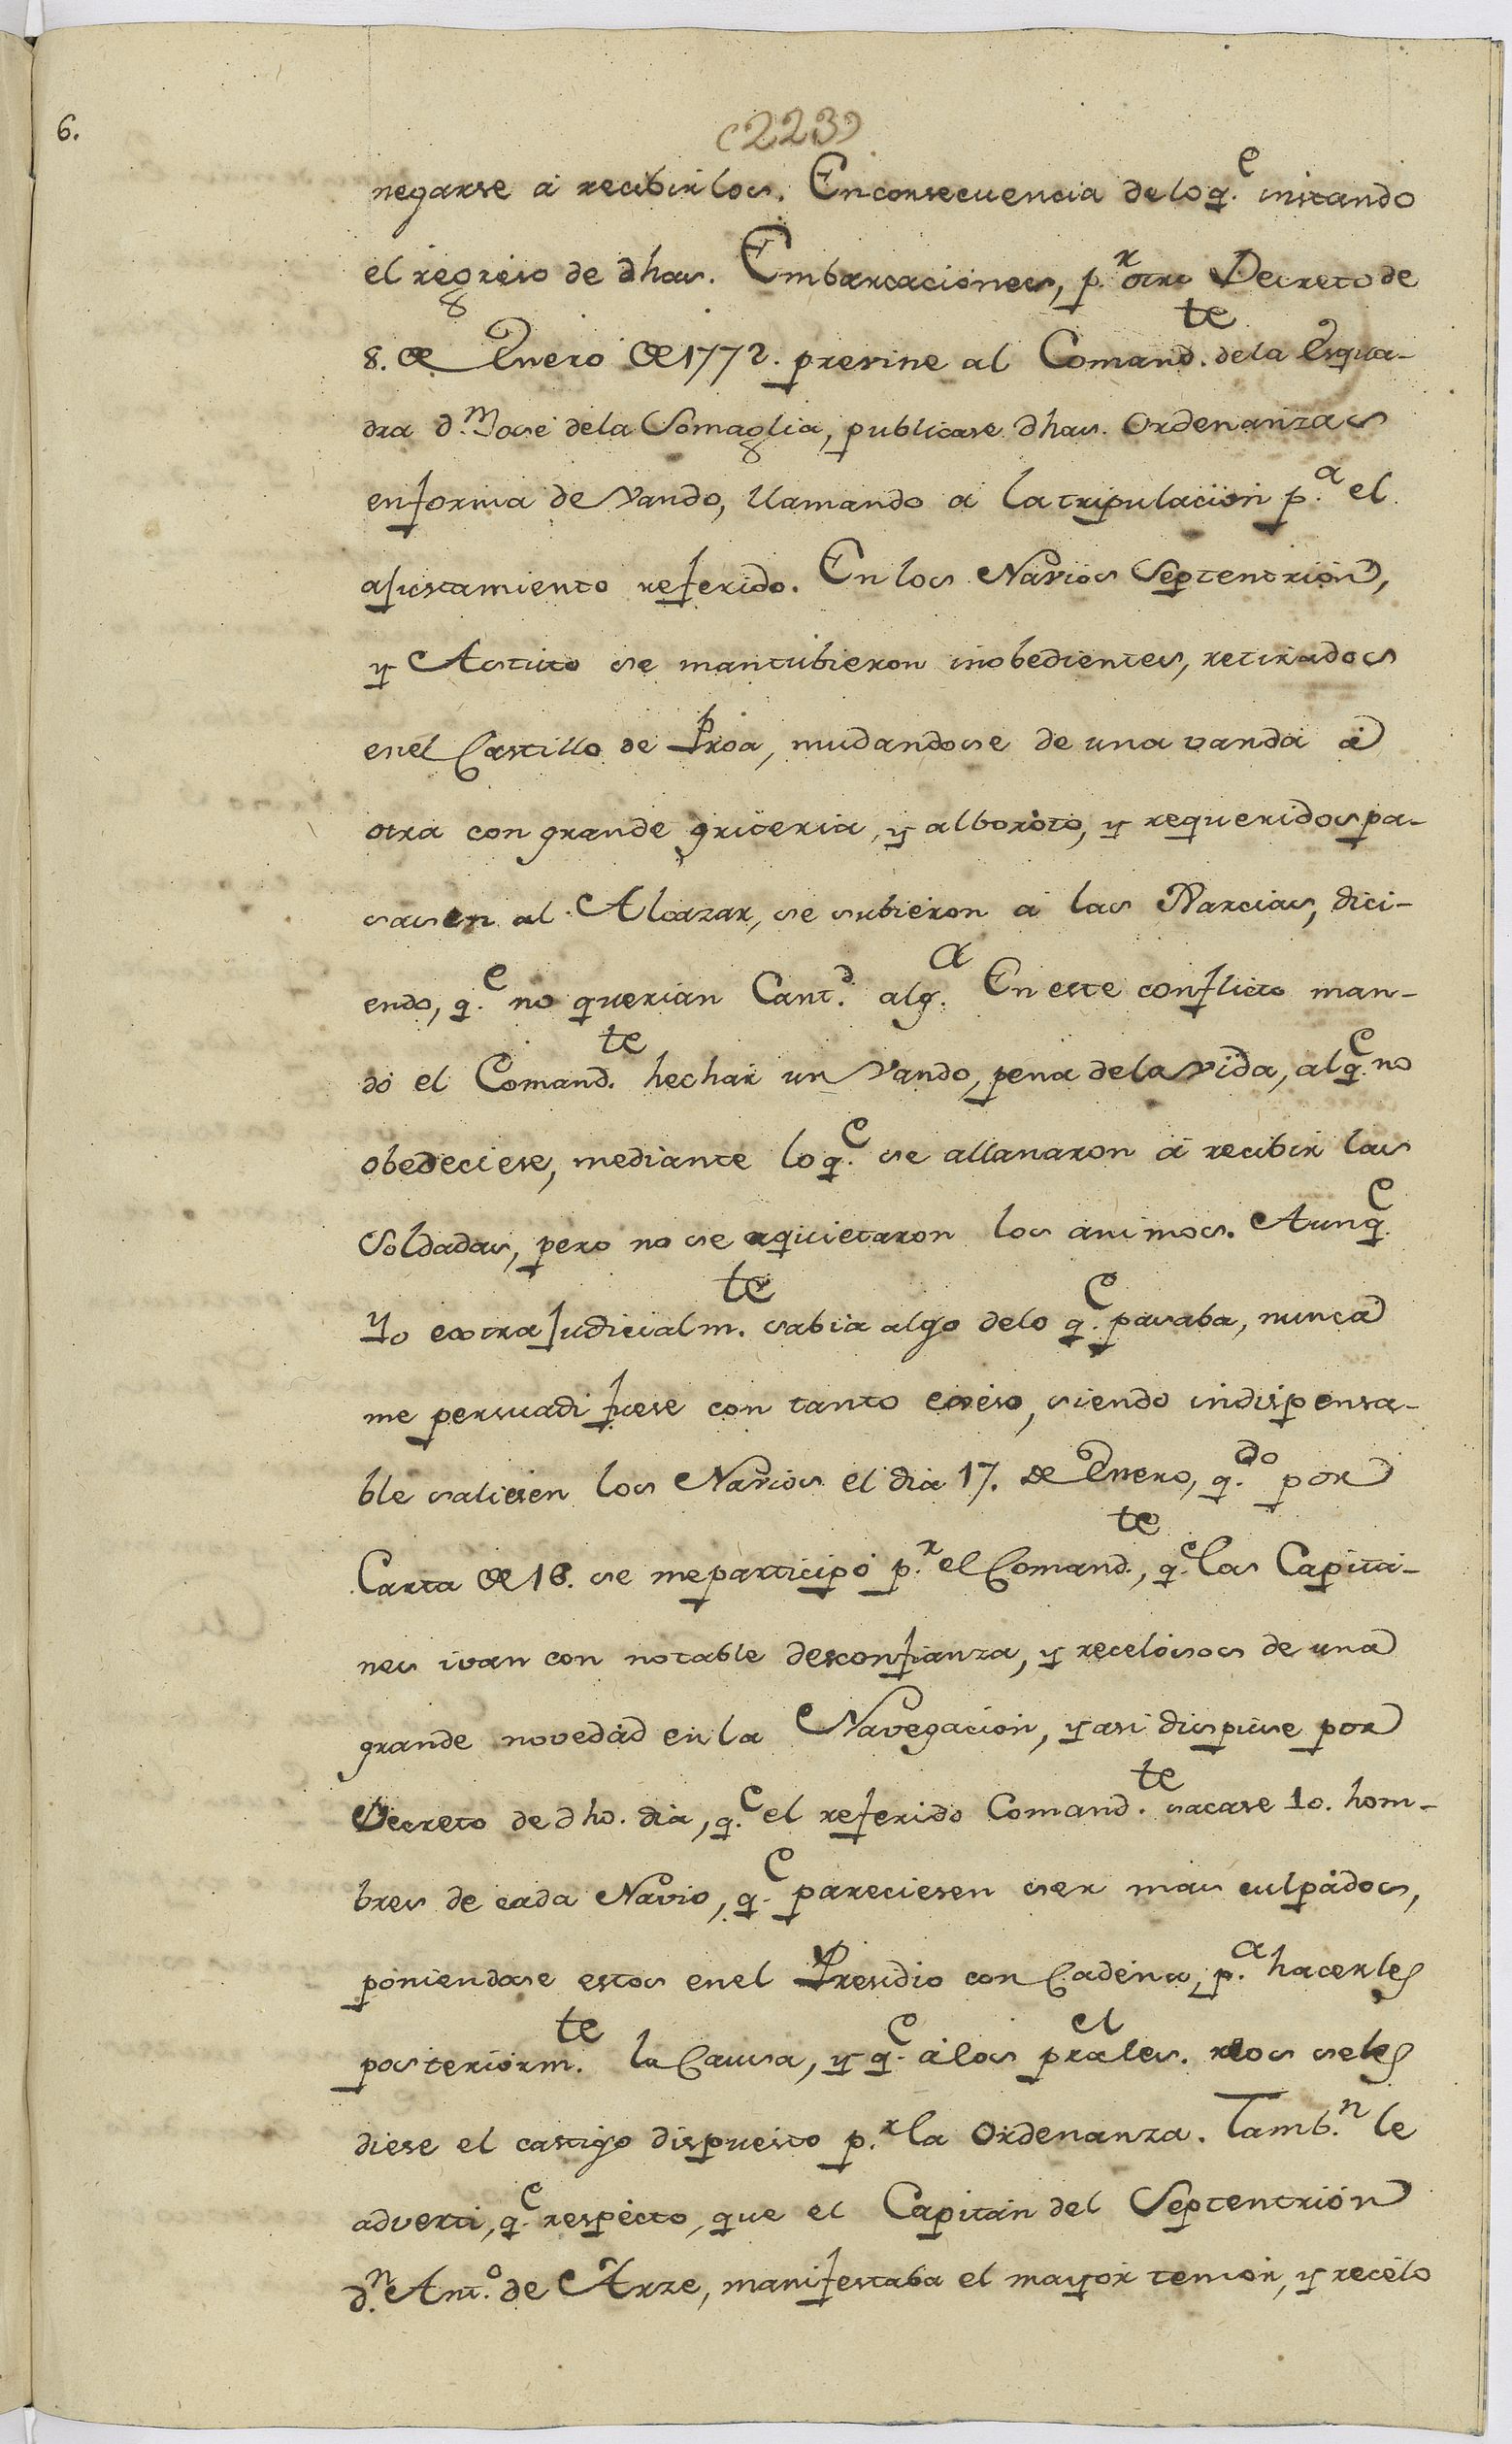 6.
(223)
negarse á recibirlos. En consecuencia de lo q.e instando
el regreso de dhas. Embarcaciones, p.r otro Decreto de
8. de Enero de 1772. previne al Comand.te de la Esqua-
dra d.n José de la Somaglia, publicase dhas. Ordenanzas
en forma de Vando, llamando a la tripulacion p.a el
ajustamiento referido. En los Navios Septentrion,
y Astuto se mantubieron inobedientes, retirados
en el Castillo de Proa, mudandose de una vanda á
otra con grande griteria, y alboroto, y requeridos pa-
sasen al Alcazar, se subieron á las Xarcias, dici-
endo, q.e no querian Cant.d alg.a En este conflicto man-
dó el Comand.te hechar un Vando, pena de la vida, al q.e no
obedeciese, mediante lo q.e se allanaron á recibir las
Soldadas, pero no se aquietaron los animos. Aunq.e
Yo extrajudicialm.te sabia algo de lo q.e pasaba, nunca
me persuadi fuese con tanto exéso, siendo indispensa-
ble saliesen los Navios el dia 17. de Enero, q.do por
Carta de 16. se me participó p.r el Comand.te, q.e los Capita-
nes ivan con notable desconfianza, y recelosos de una
grande novedad en la Navegacion, y asi dispuse por
Decreto de dho. dia, q.e el referido Comand.te sacase 10. hom-
bres de cada Navio, q.e pareciesen ser mas culpados,
poniendose estos en el Presidio con Cadena, p.a hacerles
posteriorm.te la Causa, y q.e á los prales. reos se les
diese el castigo dispuesto p.r la Ordenanza. Tamb.n le
adverti, q.e respecto, que el Capitán del Septentrión
d.n Ant.o de Arze, manifestaba el mayor temor, y recélo